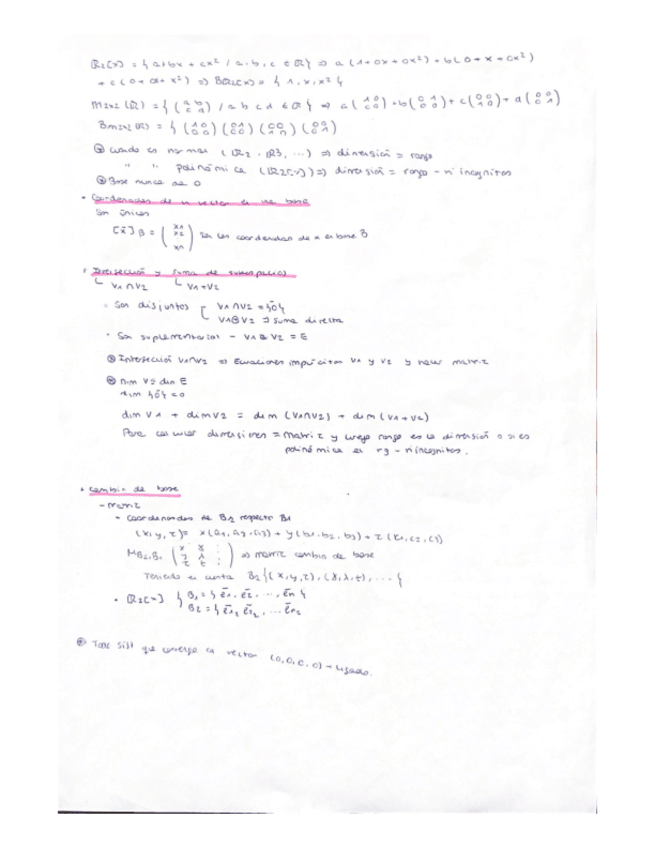 ℝ₂(x) = { a+bx + cx² / a, b, c ∈ ℝ} ⇒ a (1+0x+0x²) + b(0+x+0x²)
+ c (0+0x+x²) ⇒ Bℝ₂(x) = { 1, x, x² }
M2x2 (ℝ) = { (a b / c d) / a b c d ∈ ℝ } ⇒ a (1 0 / 0 0) + b (0 1 / 0 0) + c (0 0 / 1 0) + d (0 0 / 0 1)
Bm2x2(ℝ) = { (1 0 / 0 0) (0 1 / 0 0) (0 0 / 1 0) (0 0 / 0 1)
cuando es normal (ℝ2, ℝ3, ...) ⇒ dimensión = rango
" " polinómica (ℝ2(x)) ⇒ dimensión = rango - nº incognitas
Base nunca da 0
- Coordenadas de un vector en una base
Son únicas
[x̄]B = (x1 x2 xn) son las coordenadas de x en base B
Intersección y suma de subespacios
V1∩V2 V1+V2
Son disjuntos [ V1∩V2 = {0}
V1⊕V2 ⇒ suma directa
· Son suplementarios - V1⊕V2 = E
Intersección V1∩V2 ⇒ Ecuaciones implícitas V1 y V2 y hacer matriz
Dim V = dim E
dim {0} = 0
dim V1 + dim V2 = dim (V1∩V2) + dim (V1+V2)
Para calcular dimensiones = matriz y luego rango es la dimensión o si es
polinómica es rg - nº incognitas.
• Cambio de base
- matriz
- coordenadas de B2 respecto B1
(x, y, z) = x(a1, a2, a3) + y(b1, b2, b3) + z(c1, c2, c3)
MB2,B1 ⇒ matriz cambio de base
Teniendo en cuenta B2 {(x, y, z), ...}
• ℝ2[x] } B1 = { ē1, ē2, ..., ēn }
B2 = { ē1, ē2, ... ēn
Todo sist que contenga el vector (0,0,0,0) → ligado.